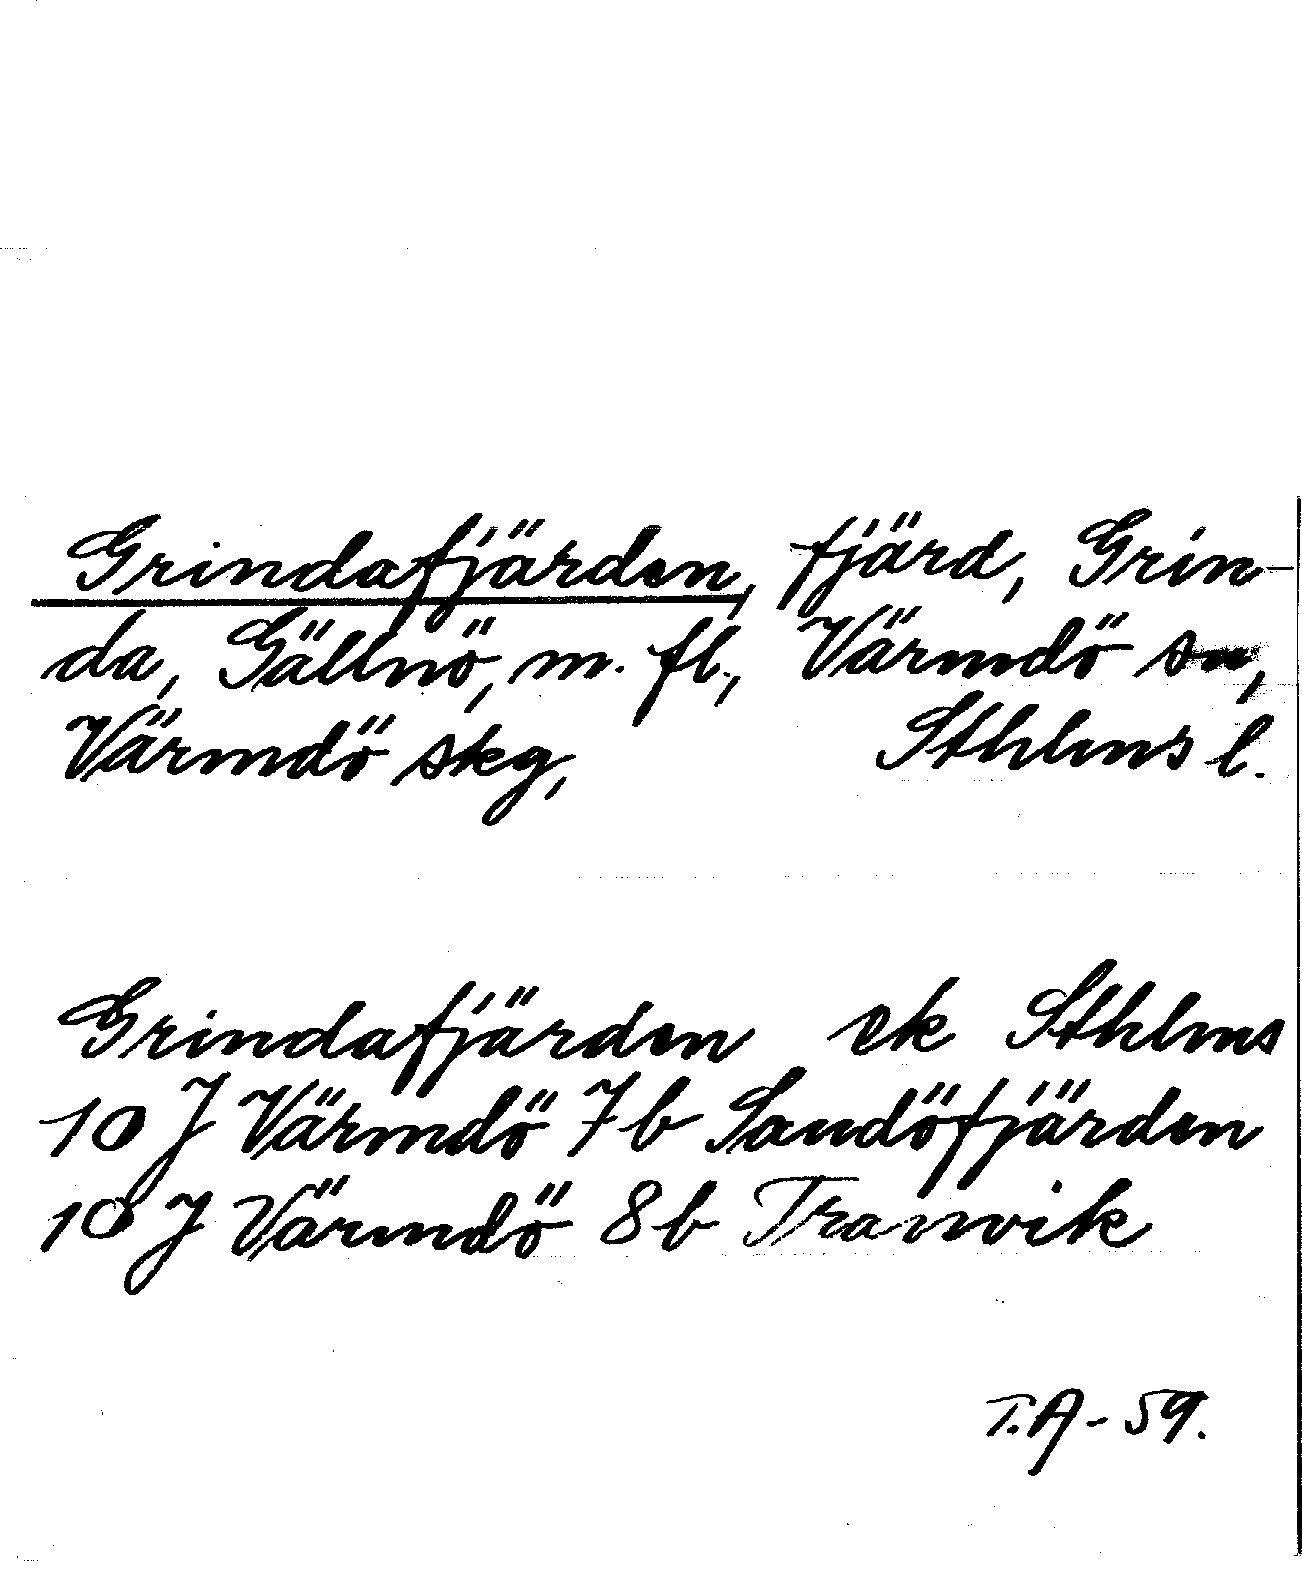 Grindafjärden, fjärd, Grin-
da, Gällnö, m. fl., Värmdö sn,
Värmdö skg, Sthlms l.
Grindafjärden ek Sthlms
10 J Värmdö 7b Sandöfjärden
10 J Värmdö 8b Tranvik
T.A-59.